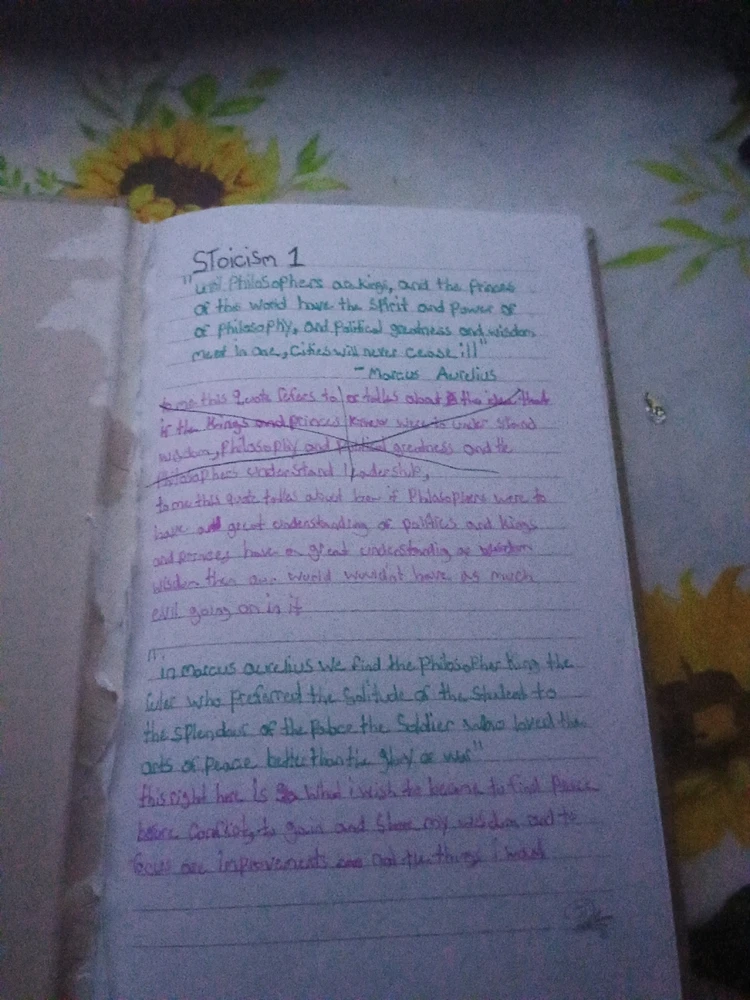 Stoicism 1
"until Philosophers are kings, and the Princes
of this world have the spirit and Power of
of Philosophy, and Political greatness and wisdom
meet in one, Cities will never cease ill"
- Marcus Aurelius
to me this quote refers to or talks about the idea that
if the Kings and princes knew were to under stand
wisdom, Philosophy and Political greatness and the
Philosophers understand leadership,
to me this quote talks about how if Philosophers were to
have a great understanding of politics and kings
and princes have a great understanding of
wisdom then our world wouldn't have as much
evil going on in it
"in Marcus aurelius we find the Philosopher King the
ruler who preferred the Solitude of the Student to
the splendour of the Palace the Soldier who loved the
arts of peace better than the glory of war"
this right here is what i wish to become to find peace
before conflict, to gain and share my wisdom and to
focus on improvements not the things i want